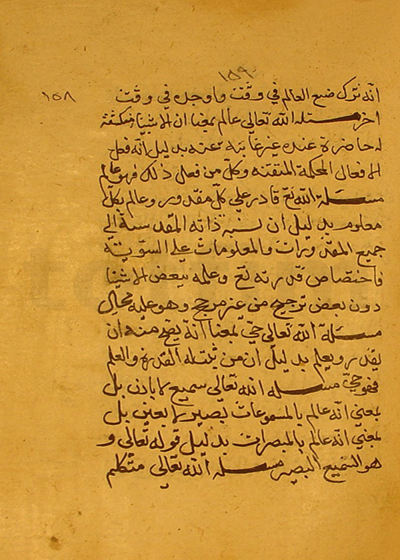 ١٥٩
١٥٨
انه ترك صنع العالم في وقت واوجده في وقت
اخر مسئله الله تعالي عالم بمعنا ان الاشيا منكشفة
له حاضرة عنده غير غايبه بدليل انه فعل
الافعال المحكمة المتقنه وكل من فعل ذلك فهو عالم
مسئلة الله تع قادر علي كل مقدور وعالم بكل
معلوم بدليل ان نسبة ذاته المقدسة الي
جميع المقدورات والمعلومات علي السوية
فاختصاص قدرته تع وعلمه ببعض الاشيا
دون بعض ترجيح من غير مرجح وهو عليه محال
مسئلة الله تعالي حي بمعنا انه يصح منه ان
يقدر ويعلم بدليل ان من ثبتت له القدرة والعلم
فهو حي مسئله الله تعالي سميع لا باذن بل
بمعني انه عالم بالمسموعات بصير لا بعين بل
بمعني انه عالم بالمبصرات بدليل قوله تعالي و
هو السميع البصير مسئله الله تعالي متكلم